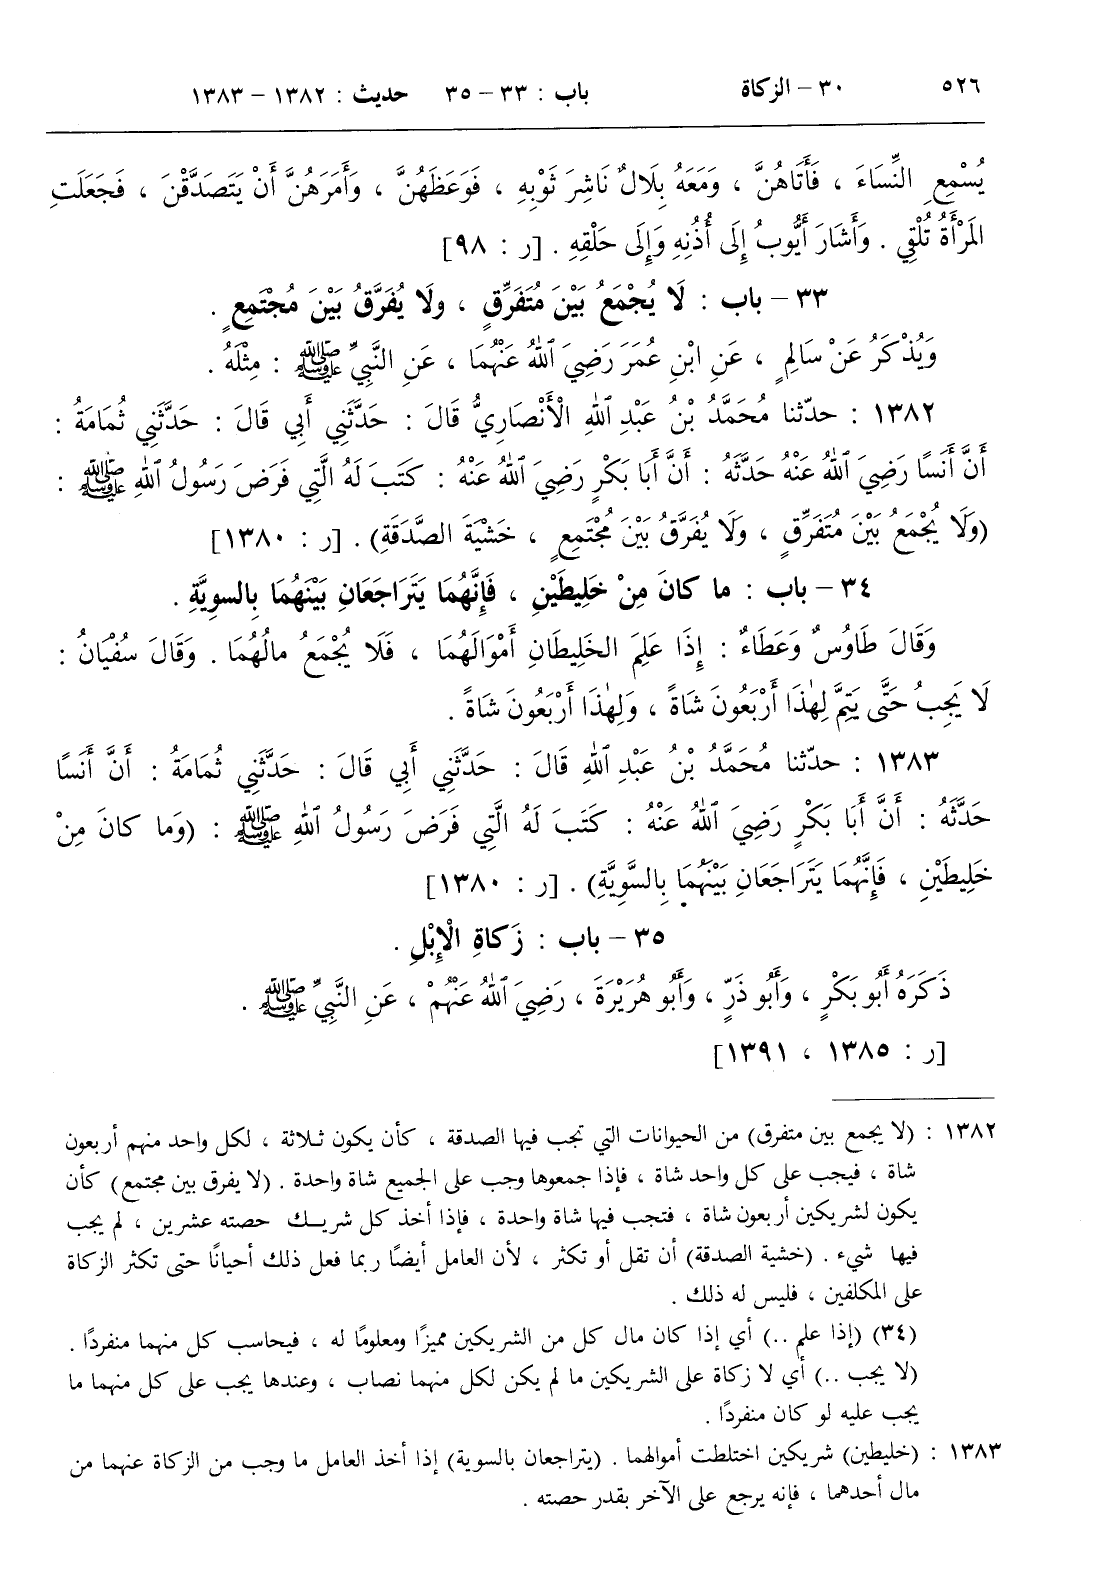 ٥٢٦ ٣٠ – الزكاة باب : ٣٣ – ٣٥ حديث : ١٣٨٢ – ١٣٨٣
يُسْمِعِ النِّسَاءَ ، فَأَتَاهُنَّ ، وَمَعَهُ بِلَالٌ نَاشِرَ ثَوْبِهِ ، فَوَعَظَهُنَّ ، وَأَمَرَهُنَّ أَنْ يَتَصَدَّقْنَ ، فَجَعَلَتِ
المَرْأَةُ تُلْقِي . وَأَشَارَ أَيُّوبُ إِلَى أُذُنِهِ وَإِلَى حَلْقِهِ . [ر : ٩٨]
٣٣ – باب : لَا يُجْمَعُ بَيْنَ مُتَفَرِّقٍ ، ولَا يُفَرَّقُ بَيْنَ مُجْتَمِعٍ .
وَيُذْكَرُ عَنْ سَالِمٍ ، عَنِ ابْنِ عُمَرَ رَضِيَ ٱللهُ عَنْهُمَا ، عَنِ النَّبِيِّ ﷺ : مِثْلَهُ .
١٣٨٢ : حدّثنا مُحَمَّدُ بْنُ عَبْدِ ٱللهِ الْأَنْصَارِيُّ قَالَ : حَدَّثَنِي أَبِي قَالَ : حَدَّثَنِي ثُمَامَةُ :
أَنَّ أَنَسًا رَضِيَ ٱللهُ عَنْهُ حَدَّثَهُ : أَنَّ أَبَا بَكْرٍ رَضِيَ ٱللهُ عَنْهُ : كَتَبَ لَهُ الَّتِي فَرَضَ رَسُولُ ٱللهِ ﷺ :
(وَلَا يُجْمَعُ بَيْنَ مُتَفَرِّقٍ ، وَلَا يُفَرَّقُ بَيْنَ مُجْتَمِعٍ ، خَشْيَةَ الصَّدَقَةِ) . [ر : ١٣٨٠]
٣٤ – باب : ما كانَ مِنْ خَلِيطَيْنِ ، فَإِنَّهُمَا يَتَرَاجَعَانِ بَيْنَهُمَا بِالسوِيَّةِ .
وَقَالَ طَاوُسٌ وَعَطَاءٌ : إِذَا عَلِمَ الخَلِيطَانِ أَمْوَالَهُمَا ، فَلَا يُجْمَعُ مالُهُمَا . وَقَالَ سُفْيَانُ :
لَا يَجِبُ حَتَّى يَتِمَّ لِهٰذَا أَرْبَعُونَ شَاةً ، وَلِهٰذَا أَرْبَعُونَ شَاةً .
١٣٨٣ : حدّثنا مُحَمَّدُ بْنُ عَبْدِ ٱللهِ قَالَ : حَدَّثَنِي أَبِي قَالَ : حَدَّثَنِي ثُمَامَةُ : أَنَّ أَنَسًا
حَدَّثَهُ : أَنَّ أَبَا بَكْرٍ رَضِيَ ٱللهُ عَنْهُ : كَتَبَ لَهُ الَّتِي فَرَضَ رَسُولُ ٱللهِ ﷺ : (وَما كانَ مِنْ
خَلِيطَيْنِ ، فَإِنَّهُمَا يَتَرَاجَعَانِ بَيْنَهُمَا بِالسَّوِيَّةِ) . [ر : ١٣٨٠]
٣٥ – باب : زَكاةِ الْإِبْلِ .
ذَكَرَهُ أَبُو بَكْرٍ ، وَأَبُو ذَرٍّ ، وَأَبُو هُرَيْرَةَ ، رَضِيَ ٱللهُ عَنْهُمْ ، عَنِ النَّبِيِّ ﷺ .
[ر : ١٣٨٥ ، ١٣٩١]
١٣٨٢ : (لا يجمع بين متفرق) من الحيوانات التي تجب فيها الصدقة ، كأن يكون ثلاثة ، لكل واحد منهم أربعون
شاة ، فيجب على كل واحد شاة ، فإذا جمعوها وجب على الجميع شاة واحدة . (لا يفرق بين مجتمع) كأن
يكون لشريكين أربعون شاة ، فتجب فيها شاة واحدة ، فإذا أخذ كل شريك حصته عشرين ، لم يجب
فيها شيء . (خشية الصدقة) أن تقل أو تكثر ، لأن العامل أيضًا ربما فعل ذلك أحيانًا حتى تكثر الزكاة
على المكلفين ، فليس له ذلك .
(٣٤) (إذا علم ..) أي إذا كان مال كل من الشريكين مميزًا ومعلومًا له ، فيحاسب كل منهما منفردًا .
(لا يجب ..) أي لا زكاة على الشريكين ما لم يكن لكل منهما نصاب ، وعندها يجب على كل منهما ما
يجب عليه لو كان منفردًا .
١٣٨٣ : (خليطين) شريكين اختلطت أموالهما . (يتراجعان بالسوية) إذا أخذ العامل ما وجب من الزكاة عنهما من
مال أحدهما ، فإنه يرجع على الآخر بقدر حصته .